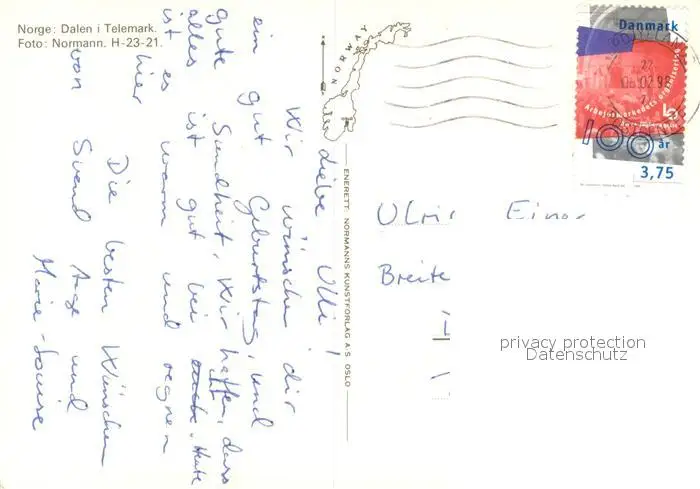 Norge: Dalen i Telemark.
Foto: Normann. H-23-21.
NORWAY
ENERETT: NORMANNS KUNSTFORLAG A/S OSLO
Liebe Ulli!
Wir wünschen dir
ein gut Geburtstag, und
gute Sundheit, Wir hoffen, dass
alles ist gut bei
Heute
ist es warm und regnen
hier
Die besten Wünschen
von Svend Aage und
Marie-Louise
Danmark
06.02.98
Arbejdsmarkedets organisering
100 år
3,75
Ulri
Einar
Breite
privacy protection
Datenschutz